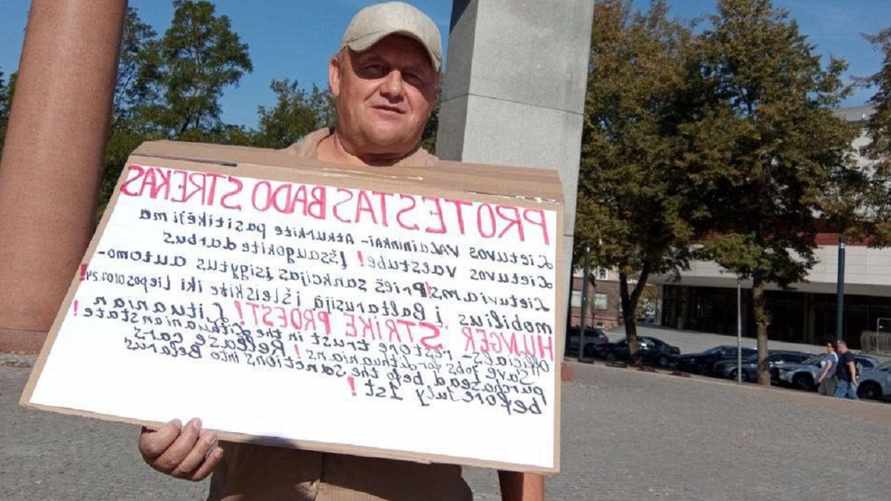 PROTESTAS BADO STREKAS
Lietuvos valdininkai - Atkurkite pasitikėjima
Lietuvos Valstube! Įšsaugokite darbus
Lietuviams! Prieš sankcijas įsigytus automo-
mobilius į Baltarusiją išleiskite iki liepos 01.07.24!
HUNGER STRIKE PROEST! Lituanian
Officials restore trust in the Lithuanian state!
Save jobs for Lithuanians! Release cars
purchased befo the sanctions into Belarus
before July 1st!